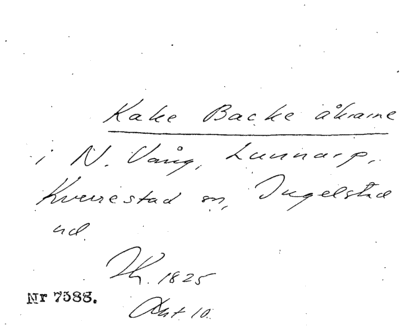 Kake Backe åkrarne
i N. Vång, Lunnarp,
Kverrestad sn, Ingelstad
hd.
Sk. 1825
Akt 10.
Nr 7588.